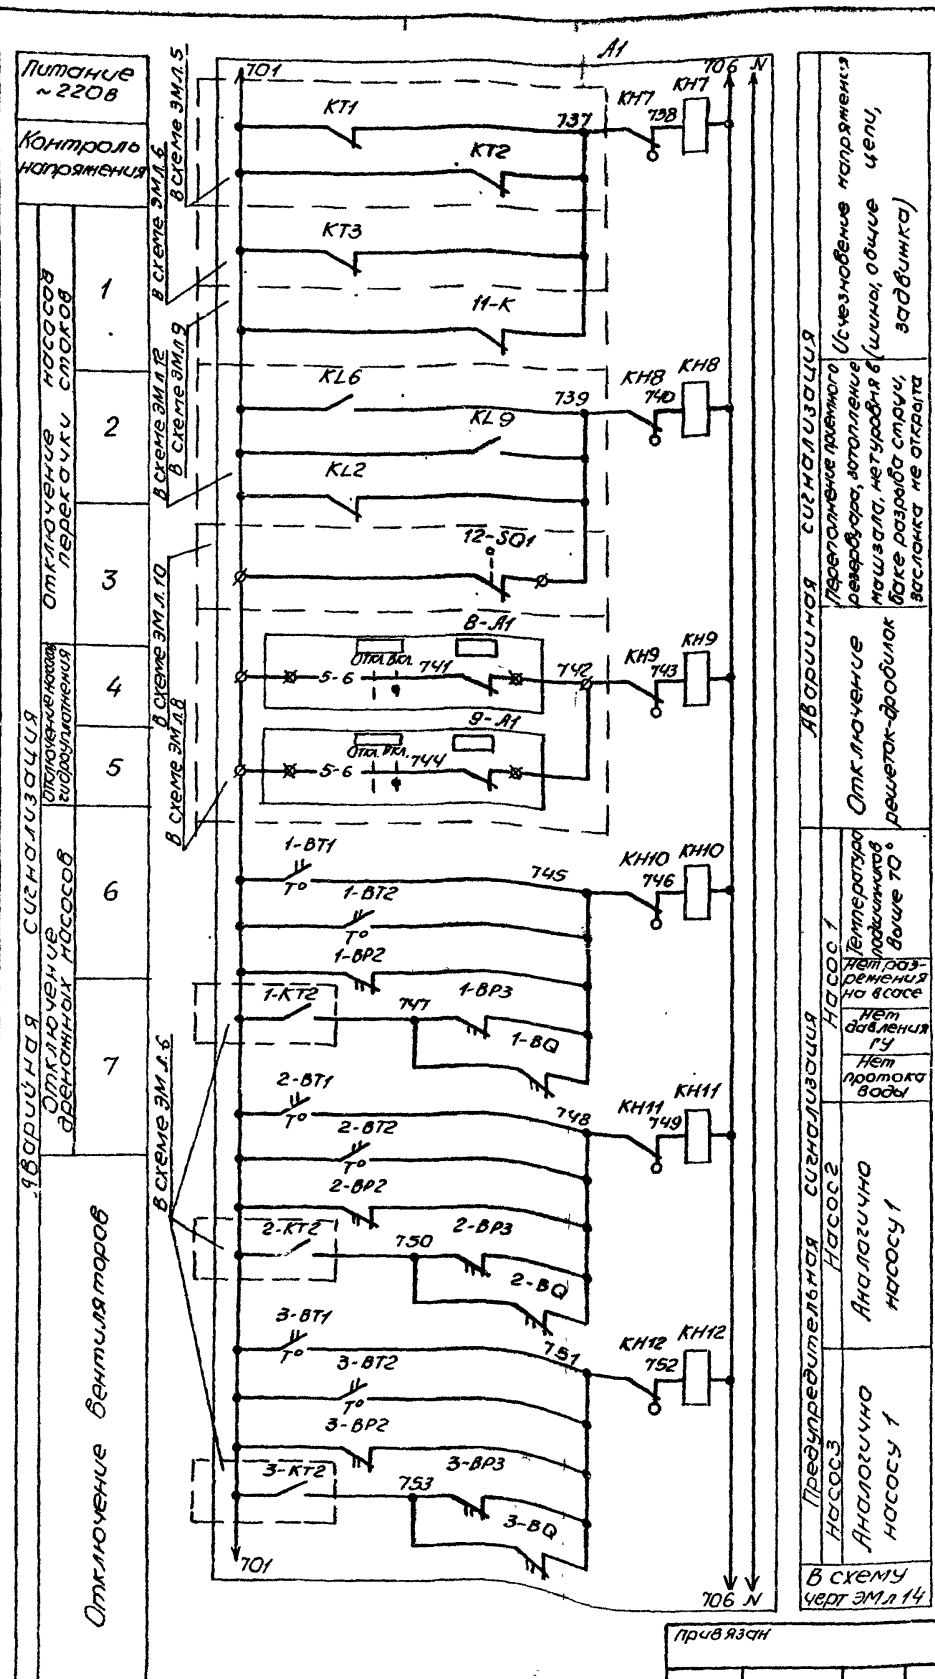 Питание
~220В
Контроль
напряжения
Аварийная сигнализация
Отключение насосов
перекачки стоков
1
2
3
Отключение насосов
гидроуплотнения
4
5
Отключение
дренажных насосов
6
7
Отключение вентиляторов
В схеме ЭМ.Л.5
В схеме ЭМ.Л.6
В схеме ЭМ.Л.9
В схеме ЭМ.Л.12
В схеме ЭМ.Л.10
В схеме ЭМ.Л.8
В схеме ЭМ.Л.6
А1
701
706 N
КТ1
737
КН7
738
КН7
КТ2
КТ3
11-К
KL6
739
КН8
740
КН8
KL9
KL2
12-SQ1
8-А1
5-6
Откл. Вкл.
741
742
КН9
743
КН9
9-А1
5-6
Откл. Вкл.
744
1-ВТ1
Т°
745
КН10
746
КН10
1-ВТ2
Т°
1-ВР2
1-КТ2
747
1-ВР3
1-BQ
2-ВТ1
Т°
748
КН11
749
КН11
2-ВТ2
Т°
2-ВР2
2-КТ2
750
2-ВР3
2-BQ
3-ВТ1
Т°
751
КН12
752
КН12
3-ВТ2
Т°
3-ВР2
3-КТ2
753
3-ВР3
3-BQ
701
706 N
Аварийная сигнализация
Исчезновение напряжения
(шины, общие цепи,
задвижка)
Переполнение приемного
резервуара, затопление
машзала, нет уровня в
баке разрыва струи,
заслонка не открыта
Отключение
решеток-дробилок
Предупредительная сигнализация
Насос 1
Температура
подшипников
выше 70°
Нет раз-
режения
на всасе
Нет
давления
ГУ
Нет
протока
воды
Насос 2
Аналогично
насосу 1
Насос 3
Аналогично
насосу 1
В схему
черт ЭМ л 14
Привязан